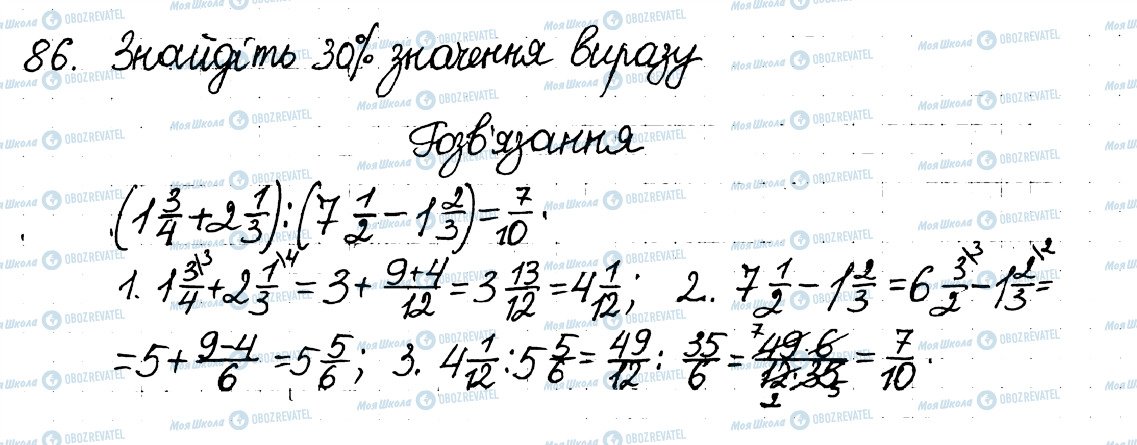 86. Знайдіть 30% значення виразу
Розв'язання
(1 3/4 + 2 1/3) : (7 1/2 − 1 2/3) = 7/10.
1. 1 3/4\3 + 2 1/3\4 = 3 + (9+4)/12 = 3 13/12 = 4 1/12; 2. 7 1/2 − 1 2/3 = 6 3/2\3 − 1 2/3\2 =
= 5 + (9−4)/6 = 5 5/6; 3. 4 1/12 : 5 5/6 = 49/12 : 35/6 = (49·6)/(12·35) = 7/10.